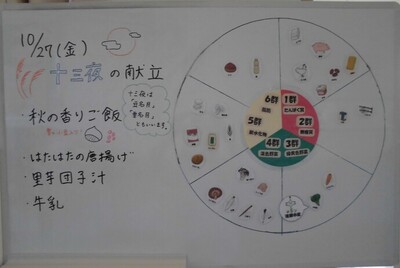 10/27(金)
十三夜の献立
十三夜は
豆名月、
栗名月、
ともいいます。
・秋の香りご飯
・はたはたの唐揚げ
・里芋団子汁
・牛乳
6群
1群
たんぱく質
5群
2群
炭水化物
4群
3群
淡色野菜
緑黄色野菜